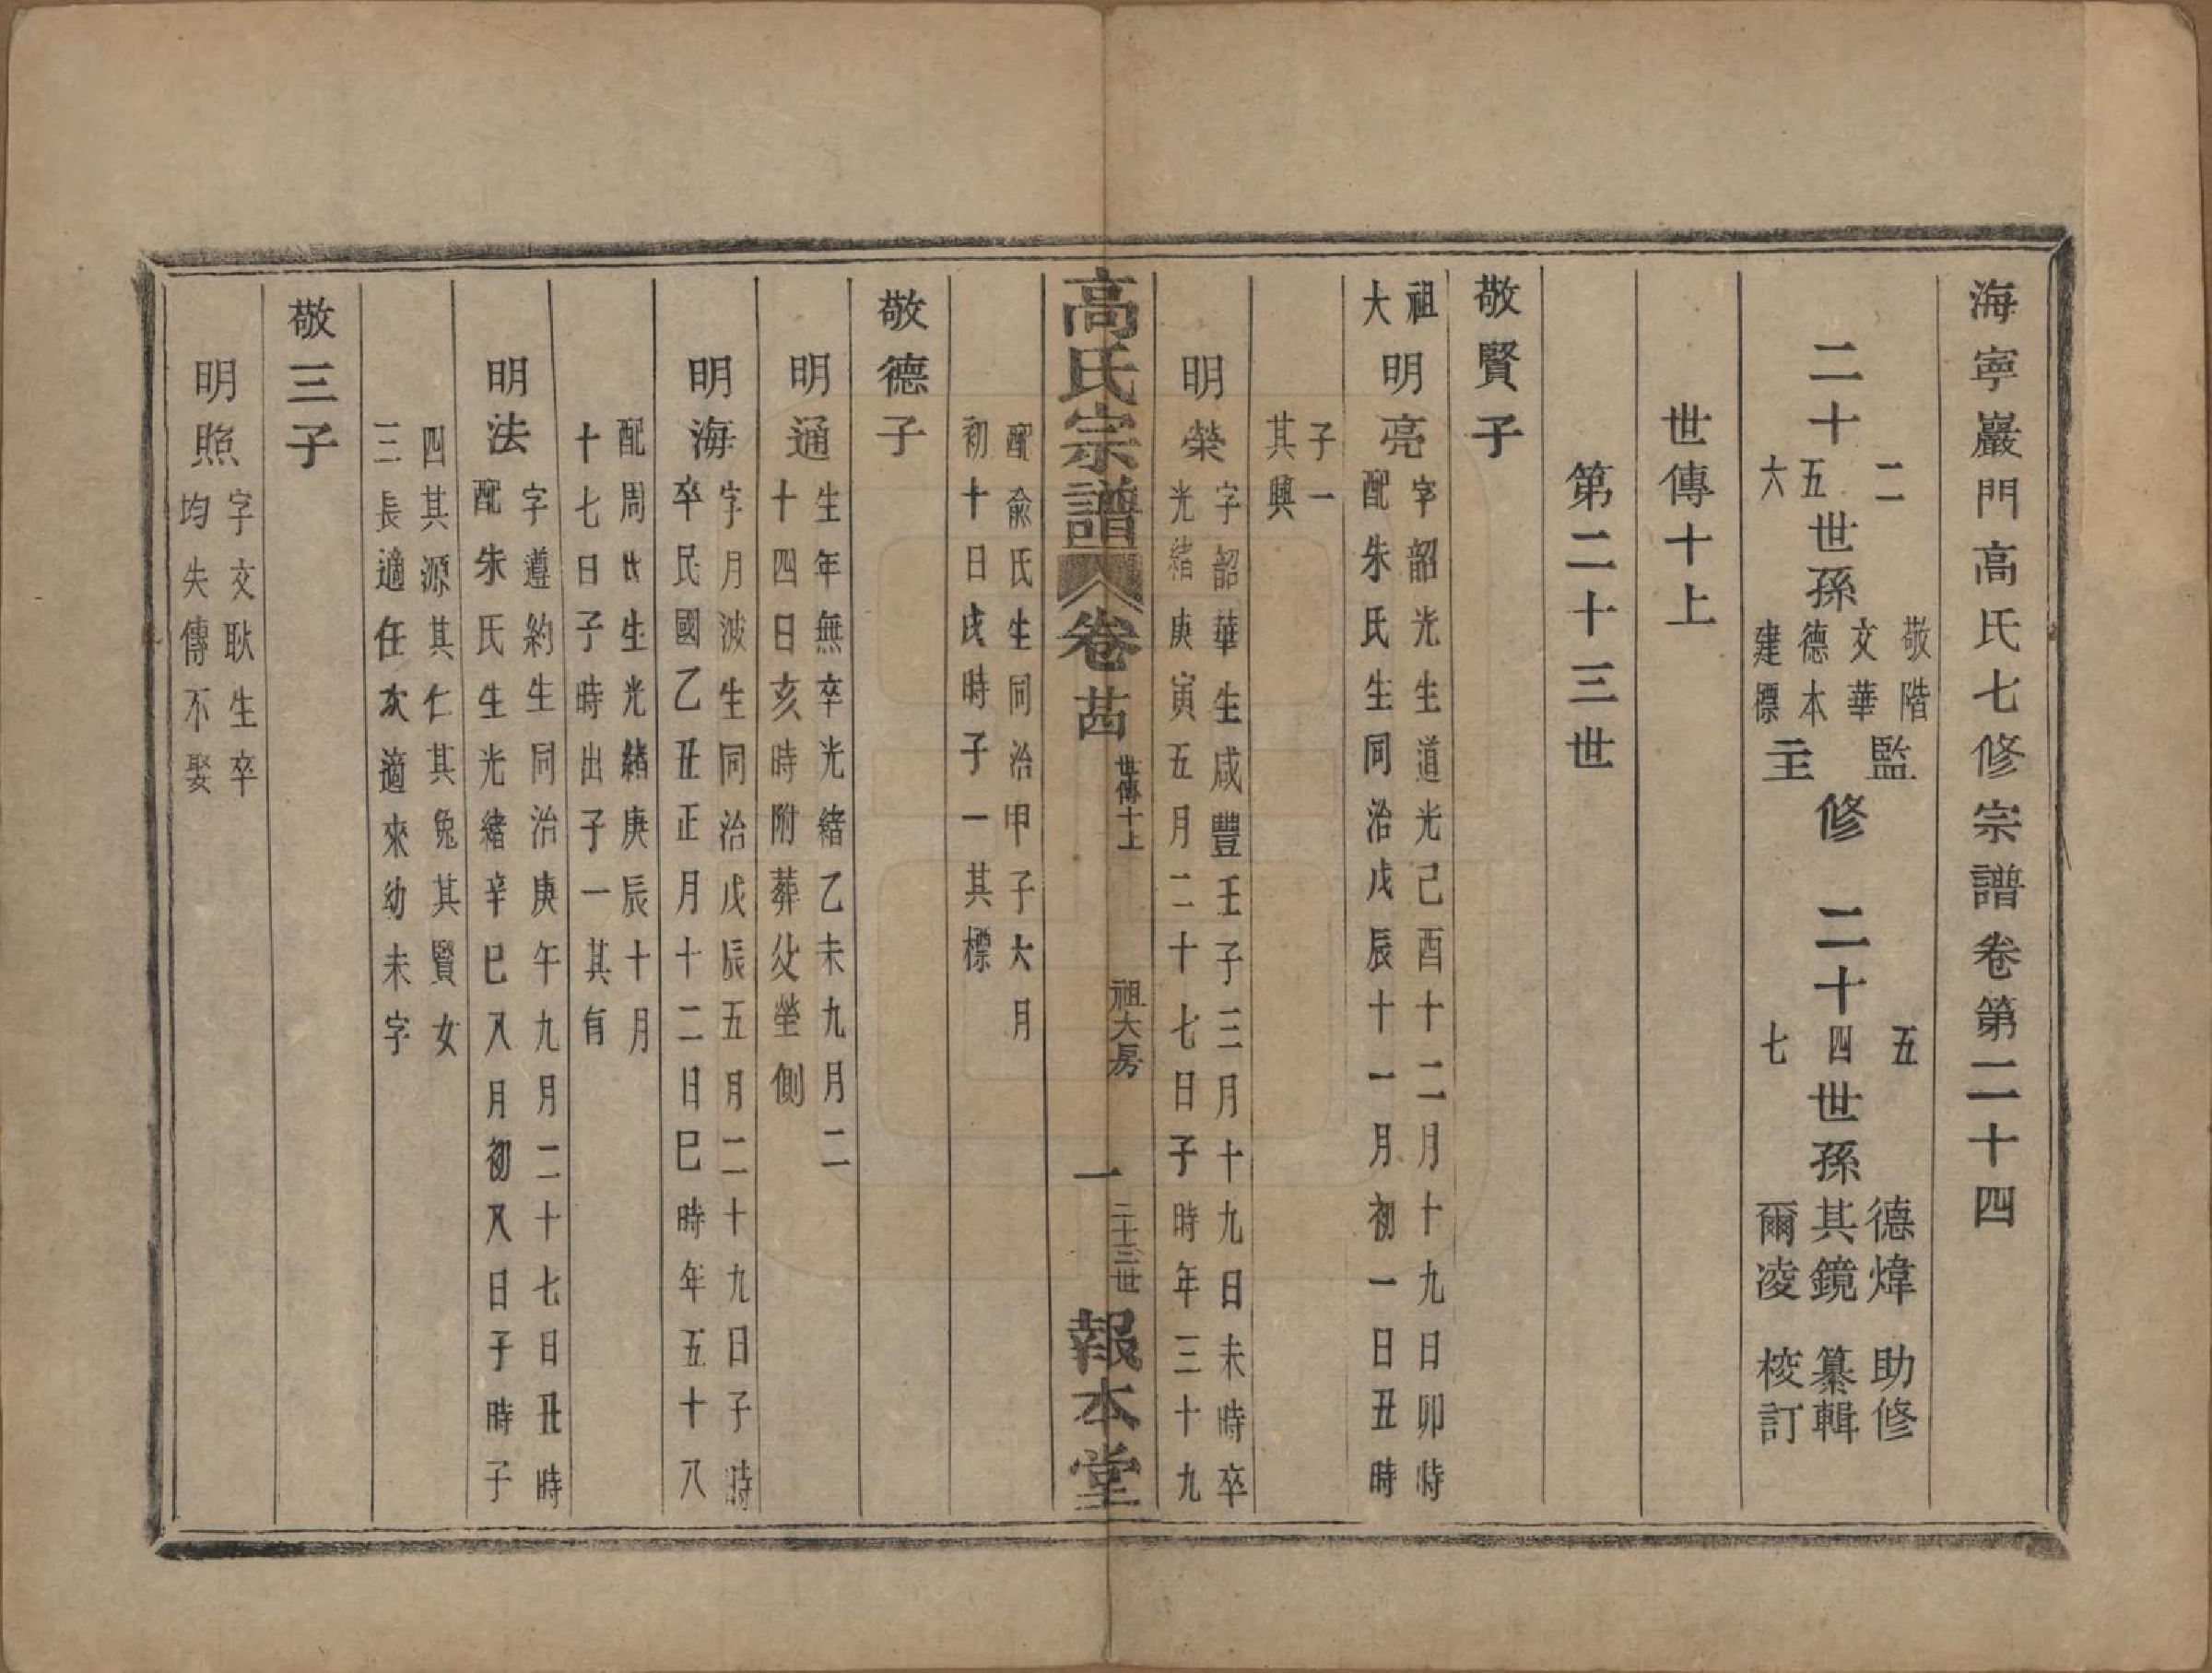 海寧巖門高氏七修宗譜卷第二十四
二十二五六世孫敬階文華德本建標監主修
二十五四七世孫德煒其鏡爾凌助修纂輯校訂
世傳十上
第二十三世
敬賢子
祖大
明亮
字韶光生道光己酉十二月十九日卯時
配朱氏生同治戊辰十一月初一日丑時
子一
其興
明榮
字韶華生咸豐壬子三月十九日未時卒
光緒庚寅五月二十七日子時年三十九
高氏宗譜
卷廿四
世傳十上
祖大房
一
二十三世
報本堂
配俞氏生同治甲子六月
初十日戌時子一其標
敬德子
明通
生年無卒光緒乙未九月二
十四日亥時附葬父塋側
明海
字月波生同治戊辰五月二十九日子時
卒民國乙丑正月十二日巳時年五十八
配周氏生光緒庚辰十月
十七日子時出子一其有
明法
字遵約生同治庚午九月二十七日丑時
配朱氏生光緒辛巳八月初八日子時子
四其源其仁其兔其賢女
三長適任次適來幼未字
敬三子
明照
字文耿生卒
均失傳不娶